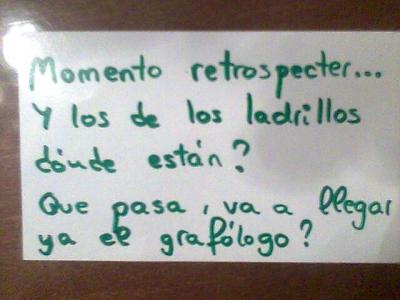 Momento retrospecter...
Y los de los ladrillos
dónde están?
Que pasa, va a llegar
ya el grafólogo?